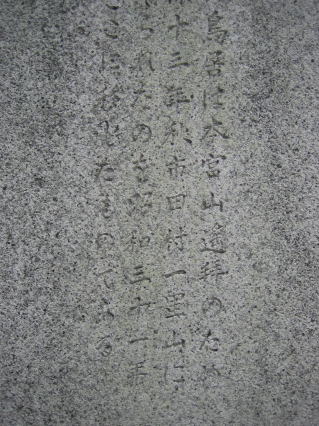 鳥居は本宮山遙拝のため
十三年秋市田村一里山に
られたのを昭和三十一年
ここに移したものである